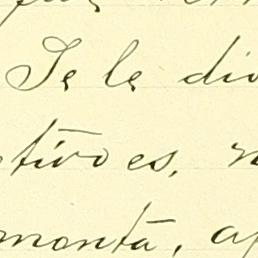 Se le dio
tivo es, n
monta, ap